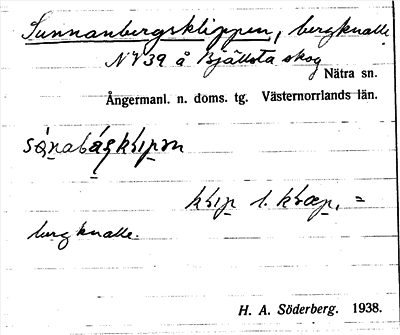 Sunnanbergsklippen, bergknalle
NV39 å Bjällsta skog
Nätra sn.
Ångermanl. n. doms. tg. Västernorrlands län.
klip l. klæp, =
bergknalle.
H. A. Söderberg. 1938.